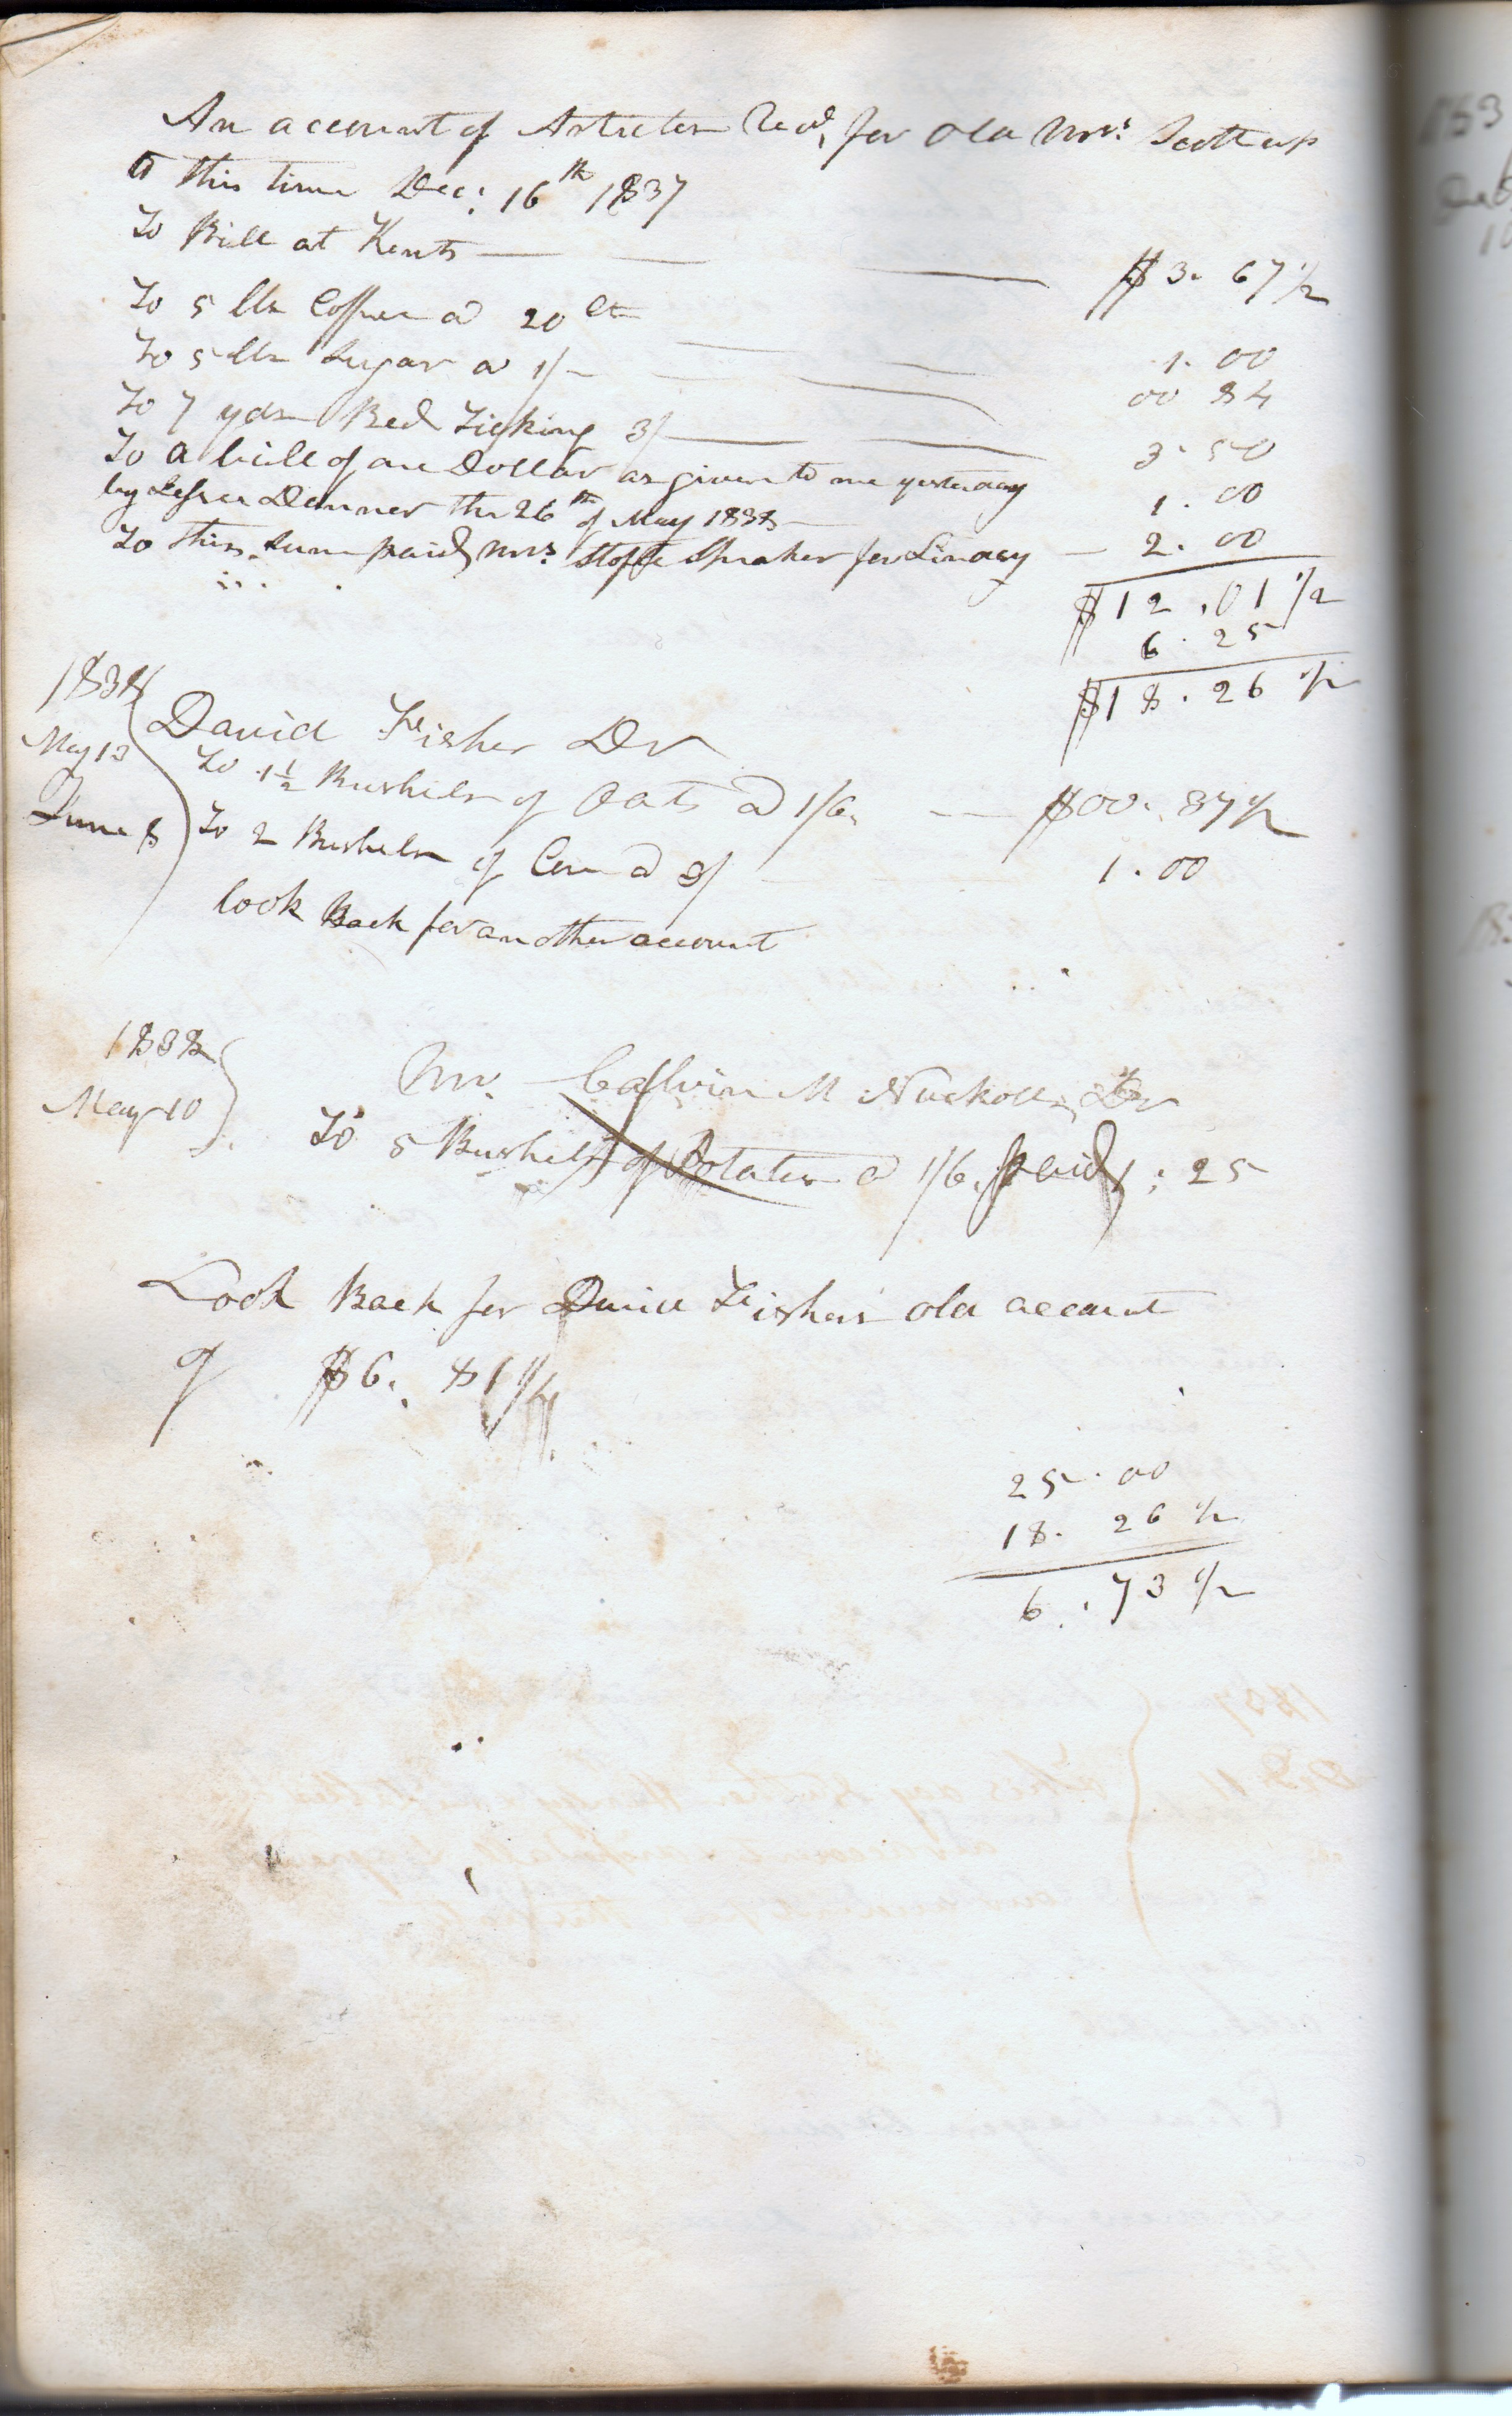 An account of Articles Recd, for Old Mrs: Scott up
to this time Dec: 16th 1837
To Bill at Kents $3. 67 1/2
To 5 lbs Coffee a 20 Cts 1. 00
To 5 lbs Sugar a 1/- 00 84
To 7 yds Bed Ticking 3/ 3. 50
To a bill of one Dollar as given to me yesterday 1. 00
by Denner the 26th of May 1838
To this sum paid Mrs: Spraker for 2. 00
$12 .01 1/2
6. 25
$18. 26 1/2
1838
May 13
June 8
David Fisher Dr
To 1 1/2 Bushels of Oats a 1/6. $00. 37 1/2
To 2 Bushels of Corn a 1.00
look Back for another account
1838
May 10
Mr. Calvin M Nuckolls Dr
To 5 Bushels of Potatoes a 1/6. paid 1 : 25
Look Back for David Fishers old account
of $6. 81 1/4
25. 00
18. 26 1/2
6. 73 1/2